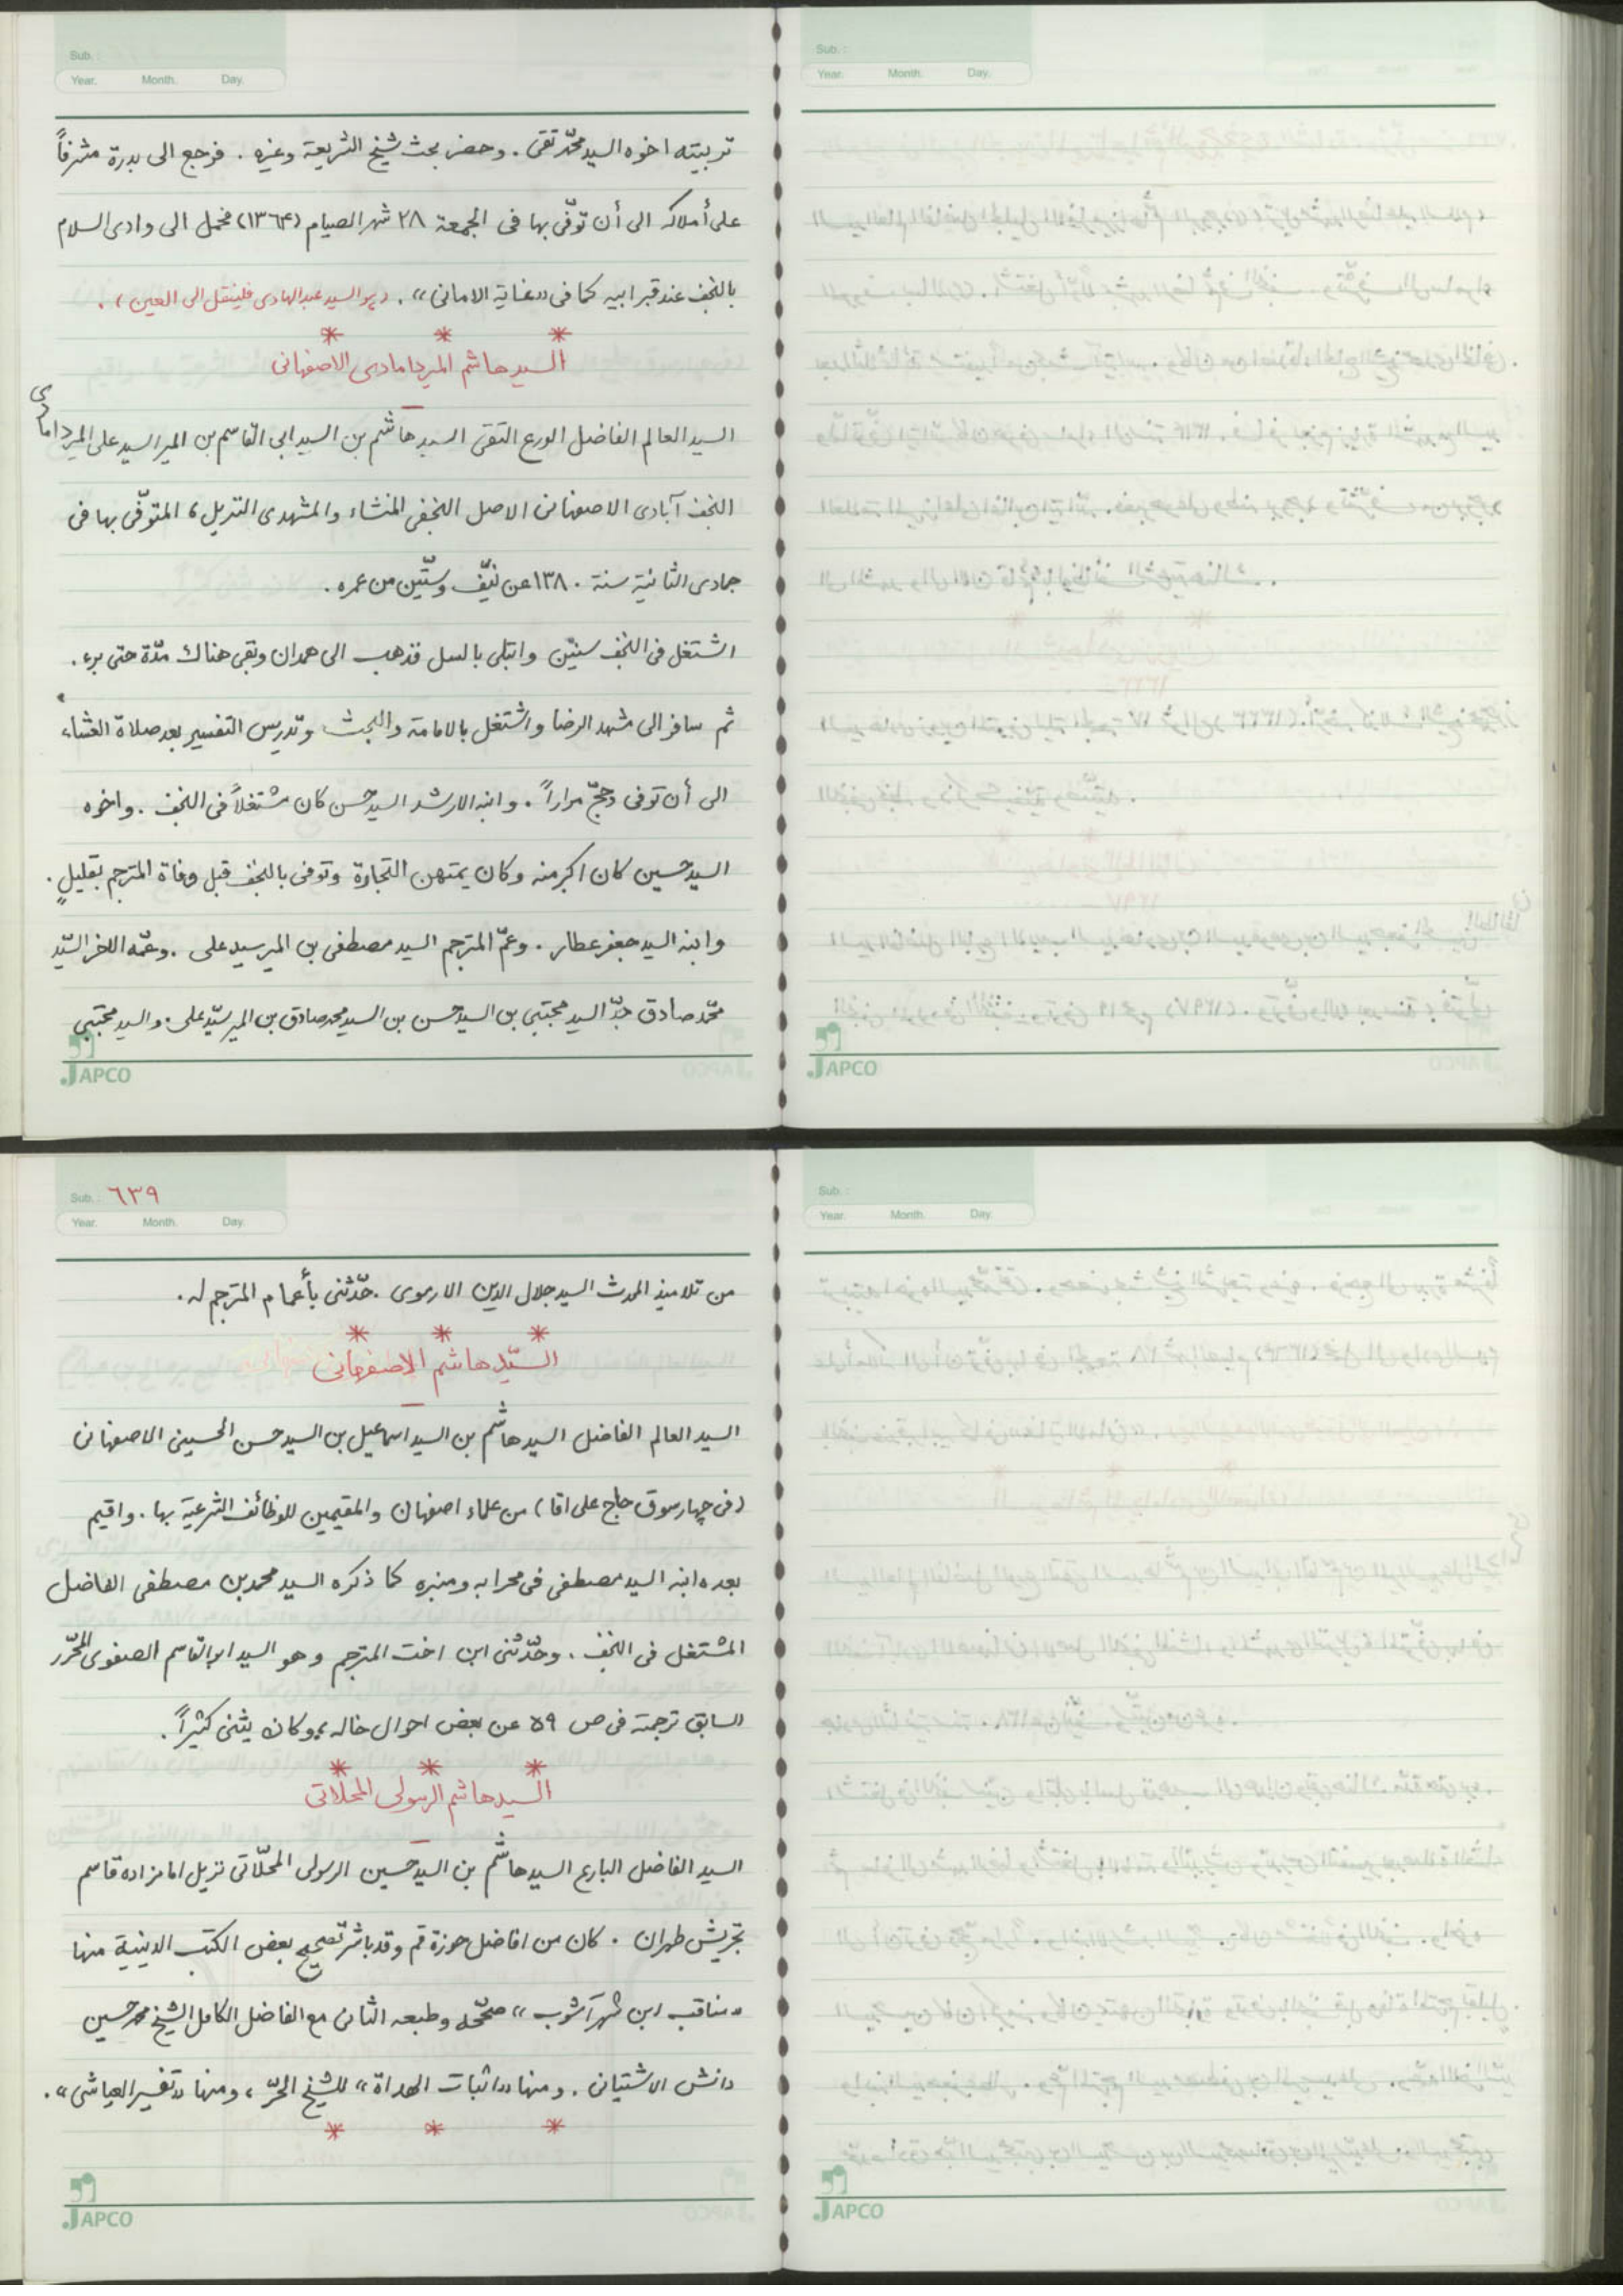 Sub. :
Year. Month. Day.
تربيته اخوه السيد محمّد تقى . وحضر بحث شيخ الشريعة وغيره . فرجع الى بدرة مشرفاً
على أملاكه الى أن توفّى بها فى الجمعة ٢٨ شهر الصيام (١٣٦۴) فحمل الى وادى السلام
بالنجف عند قبر ابيه كما فى «غاية الامانى» . (هو السيد عبد الهادى فلينقل الى العين) .
* * *
السيد هاشم الميردامادى الاصفهانى
السيد العالم الفاضل الورع التقى السيد هاشم بن السيد ابى القاسم بن المير السيد على الميردامادى
النجف آبادى الاصفهانى الاصل النجفى المنشاء والمشهدى النزيل ، المتوفّى بها فى
جمادى الثانية سنة ١٣٨٠ عن نيّف وستّين من عمره .
اشتغل فى النجف سنيّن وابتلى بالسل فذهب الى همدان وبقى هناك مدّة حتى برء .
ثم سافر الى مشهد الرضا واشتغل بالامامة والبحث وتدريس التفسير بعد صلاة العشاء
الى أن توفى وحجّ مراراً . وابنه الارشد السيد حسن كان مشتغلاً فى النجف . واخوه
السيد حسين كان اكبر منه وكان يمتهن التجارة وتوفى بالنجف قبل وفاة المترجم بقليلٍ .
وابنه السيد جعفر عطار . وعمّ المترجم السيد مصطفى بن المير سيد على . وعمّه الاخر السّيد
محّمد صادق جدّ السيد مجتبى بن السيد حسن بن السيد محمد صادق بن المير سيّد على . والسيد مجتبى
JAPCO
Sub. :
Year. Month. Day.
JAPCO
Sub. : ٦٣٩
Year. Month. Day.
من تلاميذ المحدث السيد جلال الدين الارموى . حدّثنى بأعمام المترجم له .
* * *
السيّد هاشم الاصفهانى
السيد العالم الفاضل السيد هاشم بن السيد اسماعيل بن السيد حسن الحسينى الاصفهانى
(فى چهارسوق حاج على اقا) من علماء اصفهان والمقيمين للوظائف الشرعية بها . واقيم
بعده ابنه السيد مصطفى فى محرابه ومنبره كما ذكره السيد محمد بن مصطفى الفاضل
المشتغل فى النجف . وحدّثنى ابن اخت المترجم وهو السيد ابوالقاسم الصفوى المحرّر
السابق ترجمة فى ص ٥٩ عن بعض احوال خاله ، وكان يثنى كثيراً .
* * *
السيد هاشم الرسولى المحلاتى
السيد الفاضل البارع السيد هاشم بن السيد حسين الرسولى المحلّاتى نزيل امامزاده قاسم
تجريش طهران . كان من افاضل حوزة قم وقد باشر تصحيح بعض الكتب الدينية منها
«مناقب ابن شهرآشوب» صحّحه وطبعه الثانى مع الفاضل الكامل الشيخ محمد حسين
دانش الاشتيانى . ومنها «اثبات الهداة» للشيخ الحرّ ، ومنها «تفسير العياشى» .
* * *
JAPCO
Sub. :
Year. Month. Day.
JAPCO